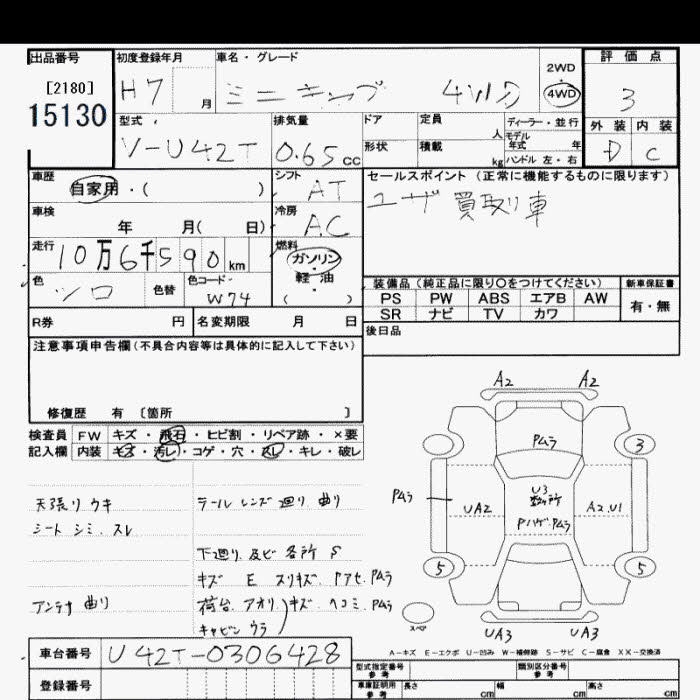 出品番号
[2180]
15130
初度登録年月
H7 月
車名・グレード
ミニキャブ 4WD
2WD
・
4WD
評価点
3
外装 内装
D C
型式
V-U42T
排気量
0.65 cc
ドア
定員 人
形状
積載 kg
ディーラー・並行
モデル
年式 年
ハンドル 左・右
車歴
自家用・( )
シフト
AT
セールスポイント (正常に機能するものに限ります)
ユーザー買取り車
車検
年 月( 日)
冷房
AC
走行
10万6千590 km
燃料
ガソリン
・
軽油
( )
色
シロ
色替
色コード
W74
装備品 (純正品に限り〇をつけてください)
新車保証書
PS PW ABS エアB AW
SR ナビ TV カワ
有・無
R券 円
名変期限 月 日
後日品
注意事項申告欄 (不具合内容等は具体的に記入して下さい)
修復歴 有 〔箇所 〕
検査員
記入欄
FW キズ・飛石・ヒビ割・リペア跡・×要
内装 キズ・汚レ・コゲ・穴・スレ・キレ・破レ
天張りウキ
シートシミ、スレ
アンテナ曲り
テールレンズ廻り曲り
下廻り及び各所S
キズ E スリキズ Pアセ、Pムラ
荷台アオリ キズ ヘコミ Pムラ
キャビンウラ
A2 A2
Pムラ
3
Pムラ
UA2
U3
数ヶ所
Pハゲ、Pムラ
A2、U1
5 5
スペア
UA3 UA3
A-キズ E-エクボ U-凹み W-補修跡 S-サビ C-腐食 XX-交換済
車台番号
U42T-0306428
登録番号
型式指定番号
参考
類別区分番号
参考
車庫証明用
参考
長さ cm
幅 cm
高さ cm